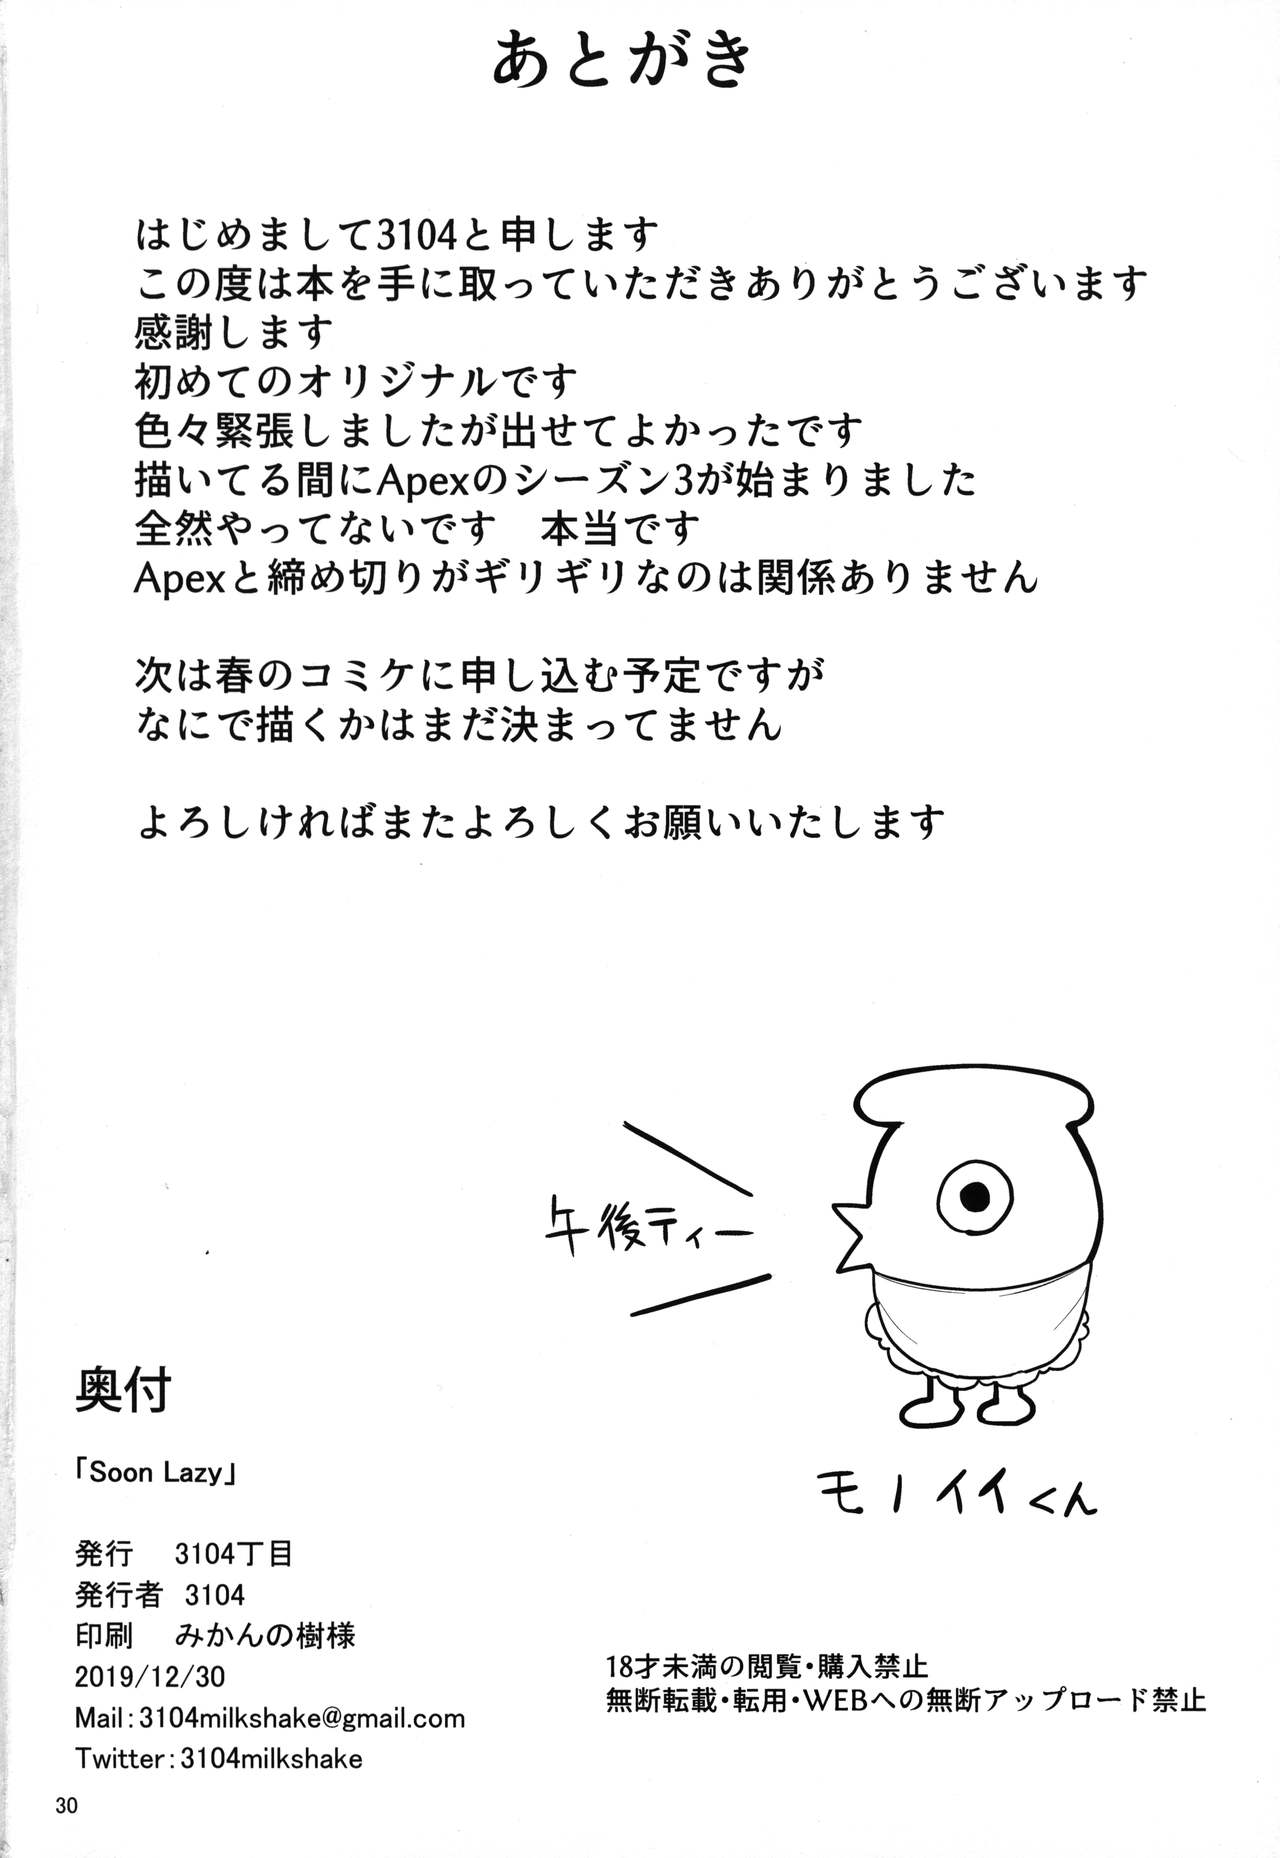 あとがき
はじめまして3104と申します
この度は本を手に取っていただきありがとうございます
感謝します
初めてのオリジナルです
色々緊張しましたが出せてよかったです
描いてる間にApexのシーズン3が始まりました
全然やってないです　本当です
Apexと締め切りがギリギリなのは関係ありません
次は春のコミケに申し込む予定ですが
なにで描くかはまだ決まってません
よろしければまたよろしくお願いいたします
午後ティー
モノイイくん
奥付
「Soon Lazy」
発行　3104丁目
発行者 3104
印刷　みかんの樹様
2019/12/30
Mail:3104milkshake@gmail.com
Twitter:3104milkshake
18才未満の閲覧・購入禁止
無断転載・転用・WEBへの無断アップロード禁止
30